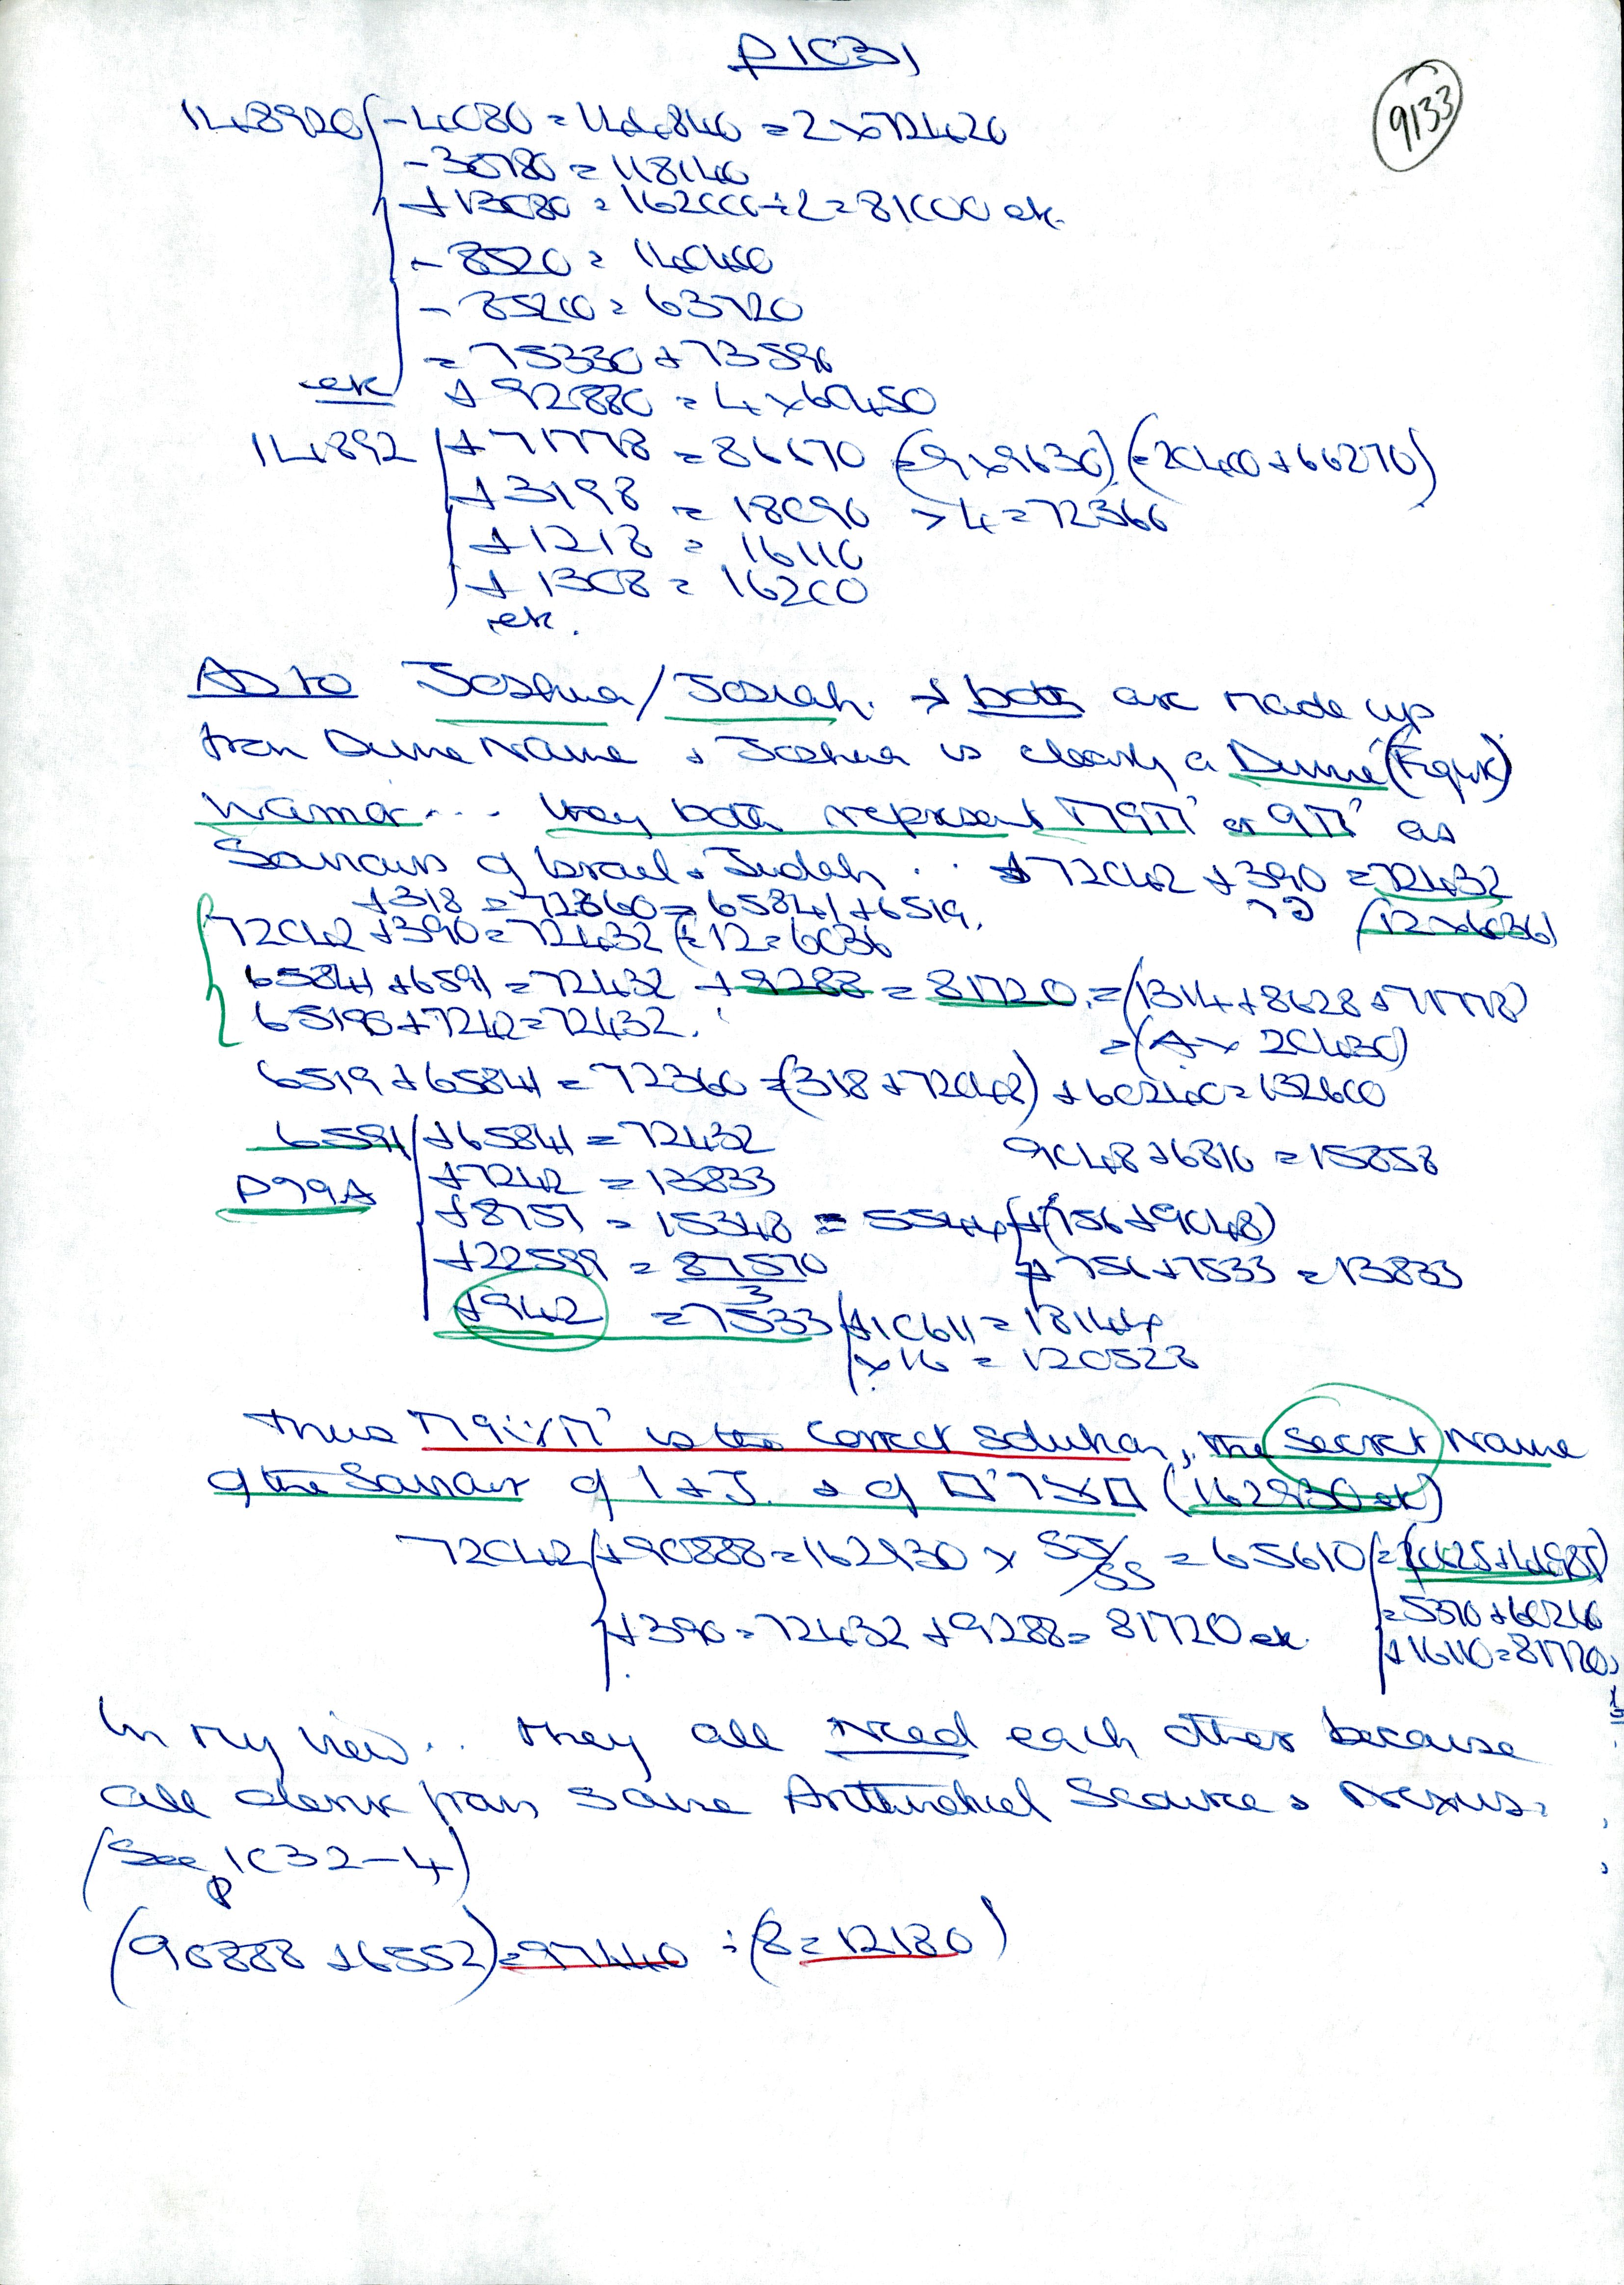 P1031
9133
148920 - 4080 = 144840 = 2 x 72420
- 30780 = 118140
+ 13080 = 162000 ÷ 2 = 81000 etc.
- 8520 = 140400
- 85200 = 63720
= 75330 + 73590
etc + 92880 = 4 x 60450
14892 + 71778 = 86670 (= 9 x 9630) (= 20400 + 66270)
+ 3198 = 18090 x 4 = 72360
+ 1218 = 16110
+ 1308 = 16200
etc.
As to Joshua / Josiah. → both are made up
from Divine Name & Joshua is clearly a Divine (Figure)
Warrior... they both represent
Saviours of Israel & Judah .. 72042 + 390 = 72432
+ 318 = 72360 = 65841 + 6519. (12 x 6036)
72042 + 390 = 72432 (÷ 12 = 6036
65841 + 6591 = 72432 + 9288 = 81720. = (1314 + 8628 + 71778)
65190 + 7242 = 72432. = (4 x 20430)
6519 + 65841 = 72360 = (318 + 72042) + 60240 = 132600
6591 + 65841 = 72432 9048 + 6810 = 15858
P99A + 7242 = 13833
+ 8757 = 15348 = 5544 + (756 + 9048)
+ 22599 = 87570 + 756 + 7533 = 13833
3
+ 942 = 7533 + 10611 = 18144
x 16 = 120528
Thus is the correct solution, the Secret Name
of the Saviour of I & J. & of (162930 etc)
72042 + 90888 = 162930 x SJ/SS = 65610 =
+ 390 = 72432 + 9288 = 81720 etc. = 5370 + 60240
+ 16110 = 81720,
In my view.. they all need each other because
all derive from same Arithmetical Source & Nexus.
(See p 1032-4)
(90888 + 6552) = 97440 ÷ (8 = 12180)